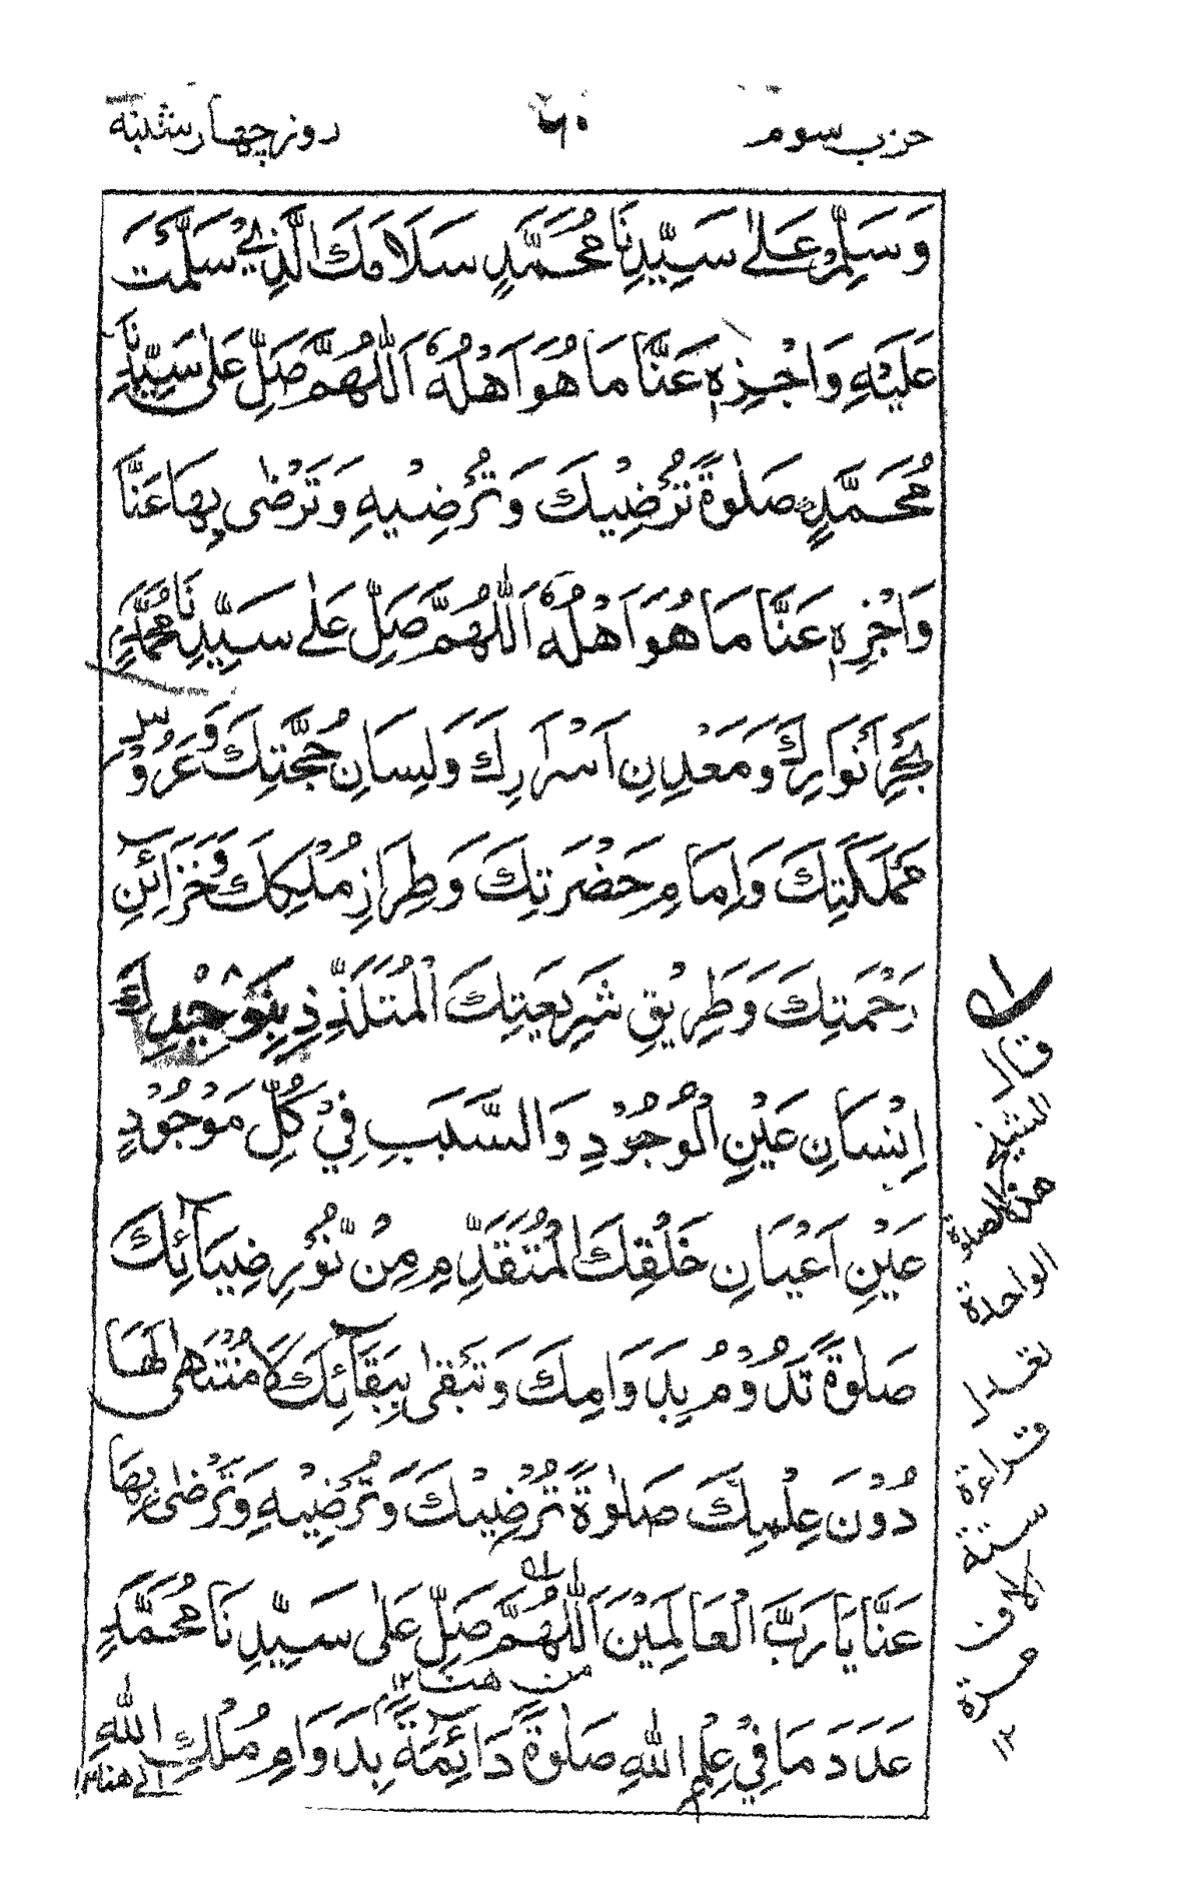 حزب سوم
٦٠
روز چهار شنبه
وَسَلِّمْ عَلٰى سَيِّدِنَا مُحَمَّدٍ سَلَامَكَ الَّذِيْ سَلَّمْتَ
عَلَيْهِ وَاجْزِهٖ عَنَّا مَا هُوَ اَهْلُهٗ اَللّٰهُمَّ صَلِّ عَلٰى سَيِّدِنَا
مُحَمَّدٍ صَلٰوةً تُرْضِيْكَ وَتُرْضِيْهِ وَتَرْضٰى بِهَا عَنَّا
وَاجْزِهٖ عَنَّا مَا هُوَ اَهْلُهٗ اَللّٰهُمَّ صَلِّ عَلٰى سَيِّدِنَا مُحَمَّدٍ
بَحْرِ اَنْوَارِكَ وَمَعْدِنِ اَسْرَارِكَ وَلِسَانِ حُجَّتِكَ وَعَرُوْسِ
مَمْلَكَتِكَ وَاِمَامِ حَضْرَتِكَ وَطِرَازِ مُلْكِكَ وَخَزَآئِنِ
رَحْمَتِكَ وَطَرِيْقِ شَرِيْعَتِكَ الْمُتَلَذِّذِ بِتَوْحِيْدِكَ
اِنْسَانِ عَيْنِ الْوُجُوْدِ وَالسَّبَبِ فِيْ كُلِّ مَوْجُوْدٍ
عَيْنِ اَعْيَانِ خَلْقِكَ الْمُتَقَدِّمِ مِنْ نُّوْرِ ضِيَآئِكَ
صَلٰوةً تَدُوْمُ بِدَوَامِكَ وَتَبْقٰى بِبَقَآئِكَ لَا مُنْتَهٰى لَهَا
دُوْنَ عِلْمِكَ صَلٰوةً تُرْضِيْكَ وَتُرْضِيْهِ وَتَرْضٰى بِهَا
عَنَّا يَا رَبَّ الْعَالَمِيْنَ اَللّٰهُمَّ صَلِّ عَلٰى سَيِّدِنَا مُحَمَّدٍ
من هنا ١٢
عَدَدَ مَا فِيْ عِلْمِ اللّٰهِ صَلٰوةً دَآئِمَةً بِدَوَامِ مُلْكِ اللّٰهِ
الى هنا ١٢
قال
الشيخ
هذه الصلوة
الواحدة
بقدر
قراءة
ستة
الاف
مرة
١٢